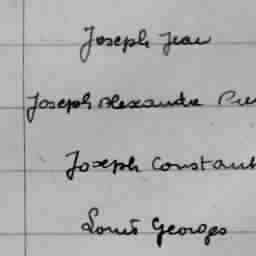 Joseph Jean
Joseph Alexandre
Joseph Constant
Louis Georges